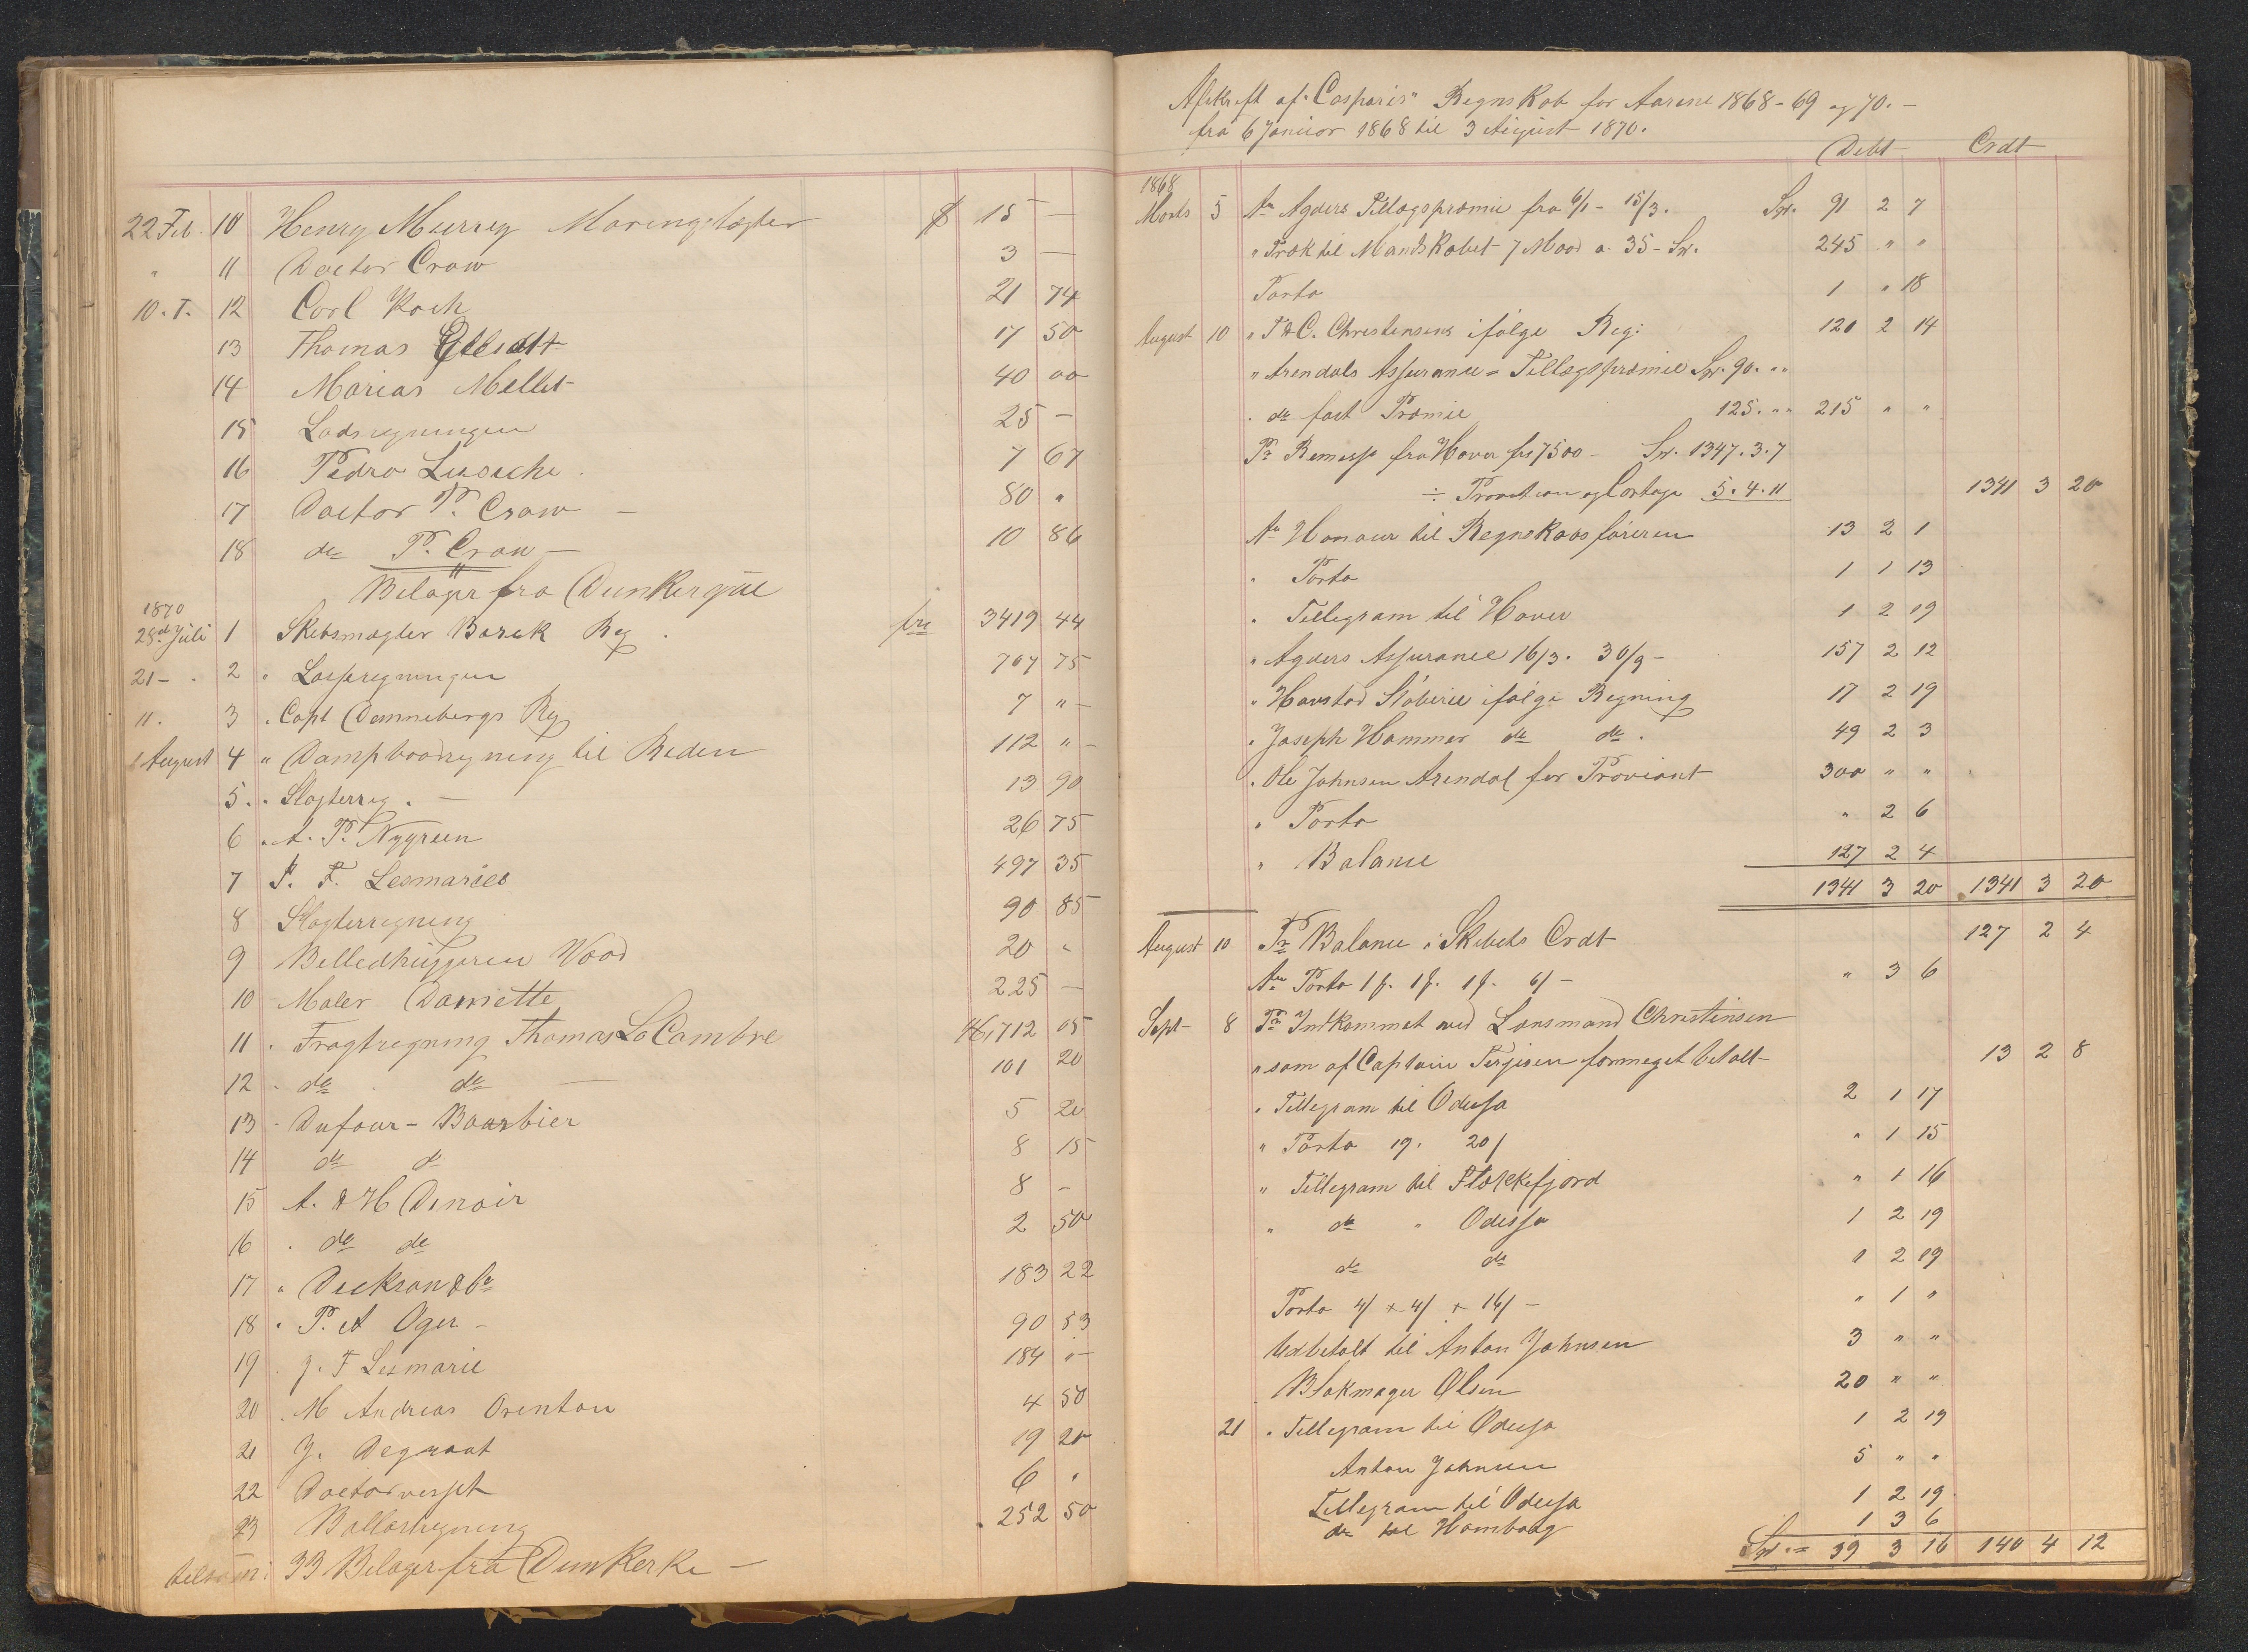 22 Feb. 10 Henry Murrey Maringslagter $ 15 —
" 11 Doctor Crow 3 —
10. T. 12 Carl Koch 21 74
13 Thomas 17 50
14 Marias Mellet 40 00
15 Lodsregningen 25 —
16 Pedro 7 67
17 Doctor P. Crow — 80 "
18 do P. Crow — 10 86
Bilager fra Dunkerque
1870
28de Juli 1 Skibsmægler Borek Reg. frc 3419 44
21 - . 2 " Losseregningen 707 75
11. 3 . Capt Dannebergs Reg 7 " -
1 August 4 " Dampbaadregning til Reden 112 " -
5. . Slagterreg. — 13 90
6 . A. P. Nygreen 26 75
7 P. F. Lesmaries 497 35
8 Slagterregning 90 85
9 Belledhuggeren Vood 20 "
10 Maler Damiette 225 —
11 . Fragtregning Thomas La Cambre 712 05
12 . do . do — 101 20
13 - Dufour - Baarbier 5 20
14 do do 8 15
15 A. & H Denoir 8 -
16 . do do 2 50
17 " Dickson & Co 183 22
18 . P. A Oger - 90 53
19 . J. F Lesmarie 184 " -
20 . M Andreas Orenton 4 50
21 J. Degraat 19 20
22 6 "
23 Ballastregning . 252 50
tilsam: 33 Bilager fra Dunkerke —
Afskreft af "Casparis" Regnskab for Aarene 1868 - 69 og 70. -
fra 6 Januar 1868 til 3 August 1870.
Debt Crdt
1868
Marts 5 An Agders Tillægspræmie fra 6/1 - 15/3. Sp. 91 2 7
" Træk til Mandskabet 7 Maad a 35 - Sp. 245 " "
Porto 1 " 18
August 10 " T & C. Christensens ifølge Reg: 120 2 14
" Arendals Assurance = Tillægspræmie Sp. 90. "
. do fast Præmie 125. " 215 " "
Pr Remesse fra Havre frs 7500 - Sp. 1347. 3. 7
÷ Provition og Cortage 5. 4. 11 1341 3 20
An Honorar til Regnskabsføreren 13 2 1
" Porto 1 1 13
. Tellegram til Havre 1 2 19
" Agders Assurance 16/3. 30/9 - 157 2 12
" Havstad Støberie ifølge Regning 17 2 19
. Joseph Hammer do do . 49 2 3
. Ole Johnsen Arendal for Proviant 300 " "
" Porto " 2 6
" Balance 127 2 4
1341 3 20 1341 3 20
August 10 Pr Balance i Skibets Crdt 127 2 4
An Porto " 3 6
Sept - 8 Pr Indkommet ved Lensmand Christensen
" som af Captain Terjesen formeget betalt - 13 2 8
. Tellegram til Odessa 2 1 17
" Porto 19. 20/ " 1 15
" Tellegram til Flekkefjord " 1 16
" do " Odessa 1 2 19
do do 1 2 19
Porto 4/ + 4/ + 16/ - " 1 "
Udbetalt til Anton Johnsen 3 " "
Blokmager Olsen 20 " "
21 . Tellegram til Odessa 1 2 19
Anton Johnsen 5 " "
Tellegram til Odessa 1 2 19
do til Hamborg 1 3 6
Sp. = 39 3 16 140 4 12